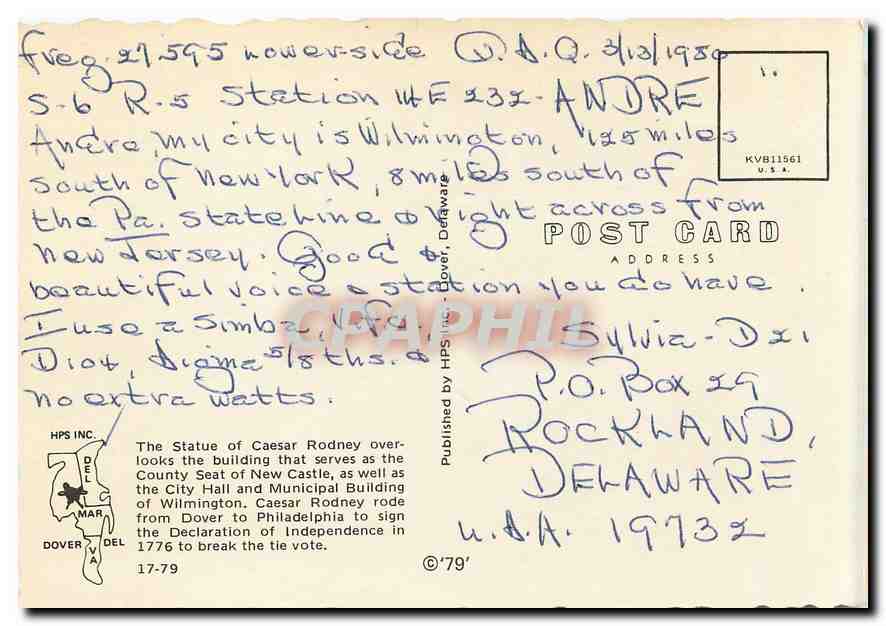 freq. 27.595 lower-side U.S.A. 3/13/1980
S-6 R-5 Station 14E232-ANDRE
Andre, my city is Wilmington, 125 miles
south of New York, 8 miles south of
the Pa. stateline & right across from
New Jersey. Good &
beautiful voice & station you do have.
I use a Simba, Vfo,
D104, Sigma 5/8ths. &
no extra watts.
KVB11561
U.S.A.
POST CARD
ADDRESS
Sylvia-Dx1
P.O. Box 29
ROCKLAND,
DELAWARE
U.S.A. 19732
CPAPHIL
Published by HPS Inc. - Dover, Delaware
HPS INC.
DEL
MAR
VA
DOVER DEL
The Statue of Caesar Rodney over-
looks the building that serves as the
County Seat of New Castle, as well as
the City Hall and Municipal Building
of Wilmington. Caesar Rodney rode
from Dover to Philadelphia to sign
the Declaration of Independence in
1776 to break the tie vote.
17-79
©'79'